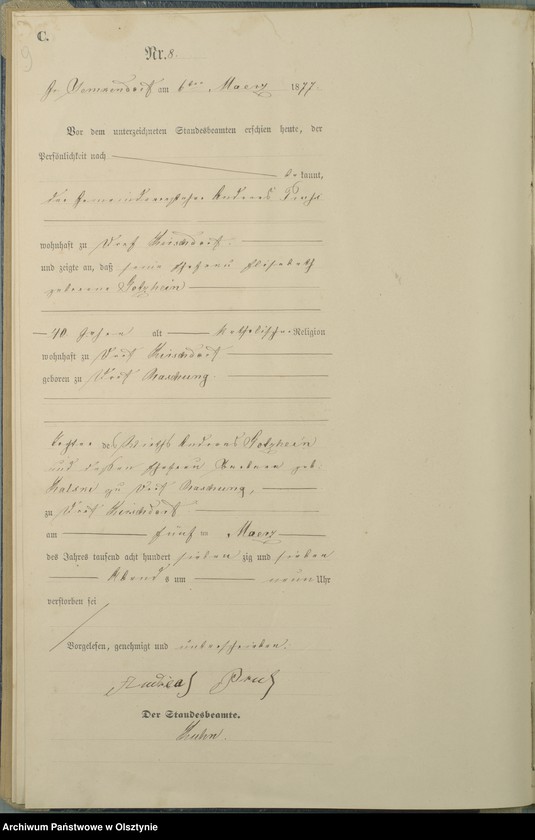 C.
Nr. 8.
am 6ten Maerz 1877.
Vor dem unterzeichneten Standesbeamten erschien heute, der
Persönlichkeit nach
bekannt,
der Andreas
wohnhaft zu Dorf Kirschdorf.
und zeigte an, daß seine Ehefrau Elisabeth
geborene Golzhein
40 Jahre alt katholischer Religion
wohnhaft zu Dorf Kirschdorf
geboren zu Dorf Raschung
Tochter des Wirths Andreas Golzhein
und dessen Ehefrau Barbara geb.
zu Dorf Raschung,
zu Dorf Kirschdorf
am fünf ten Maerz
des Jahres tausend acht hundert siebenzig und sieben
Abends um neun Uhr
verstorben sei
Vorgelesen, genehmigt und unterschrieben.
Andreas
Der Standesbeamte.
Kuhn.
Archiwum Państwowe w Olsztynie